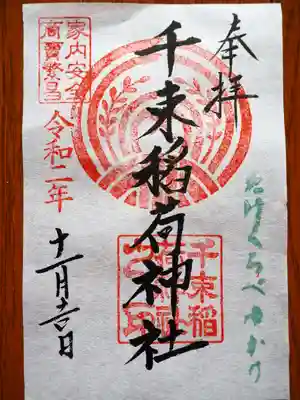 奉拝
たけくらべゆかり
千束稲荷神社
千束稲
家内安全
商賣繁昌
令和二年
十一月吉日